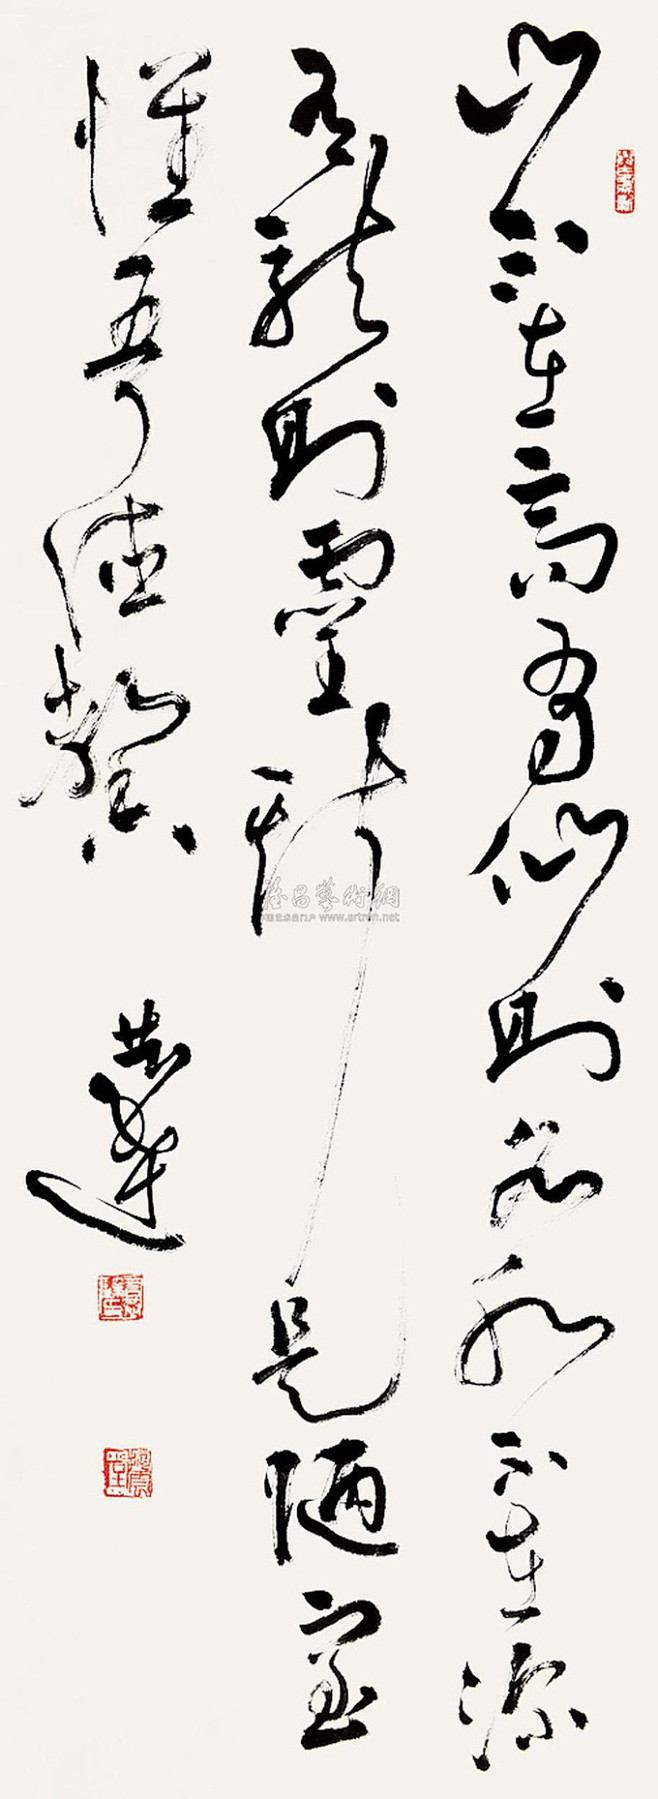 山不在高有仙則名水不在深
有龍則靈斯是陋室
惟吾德馨
達
雅昌藝術網
www.artron.net